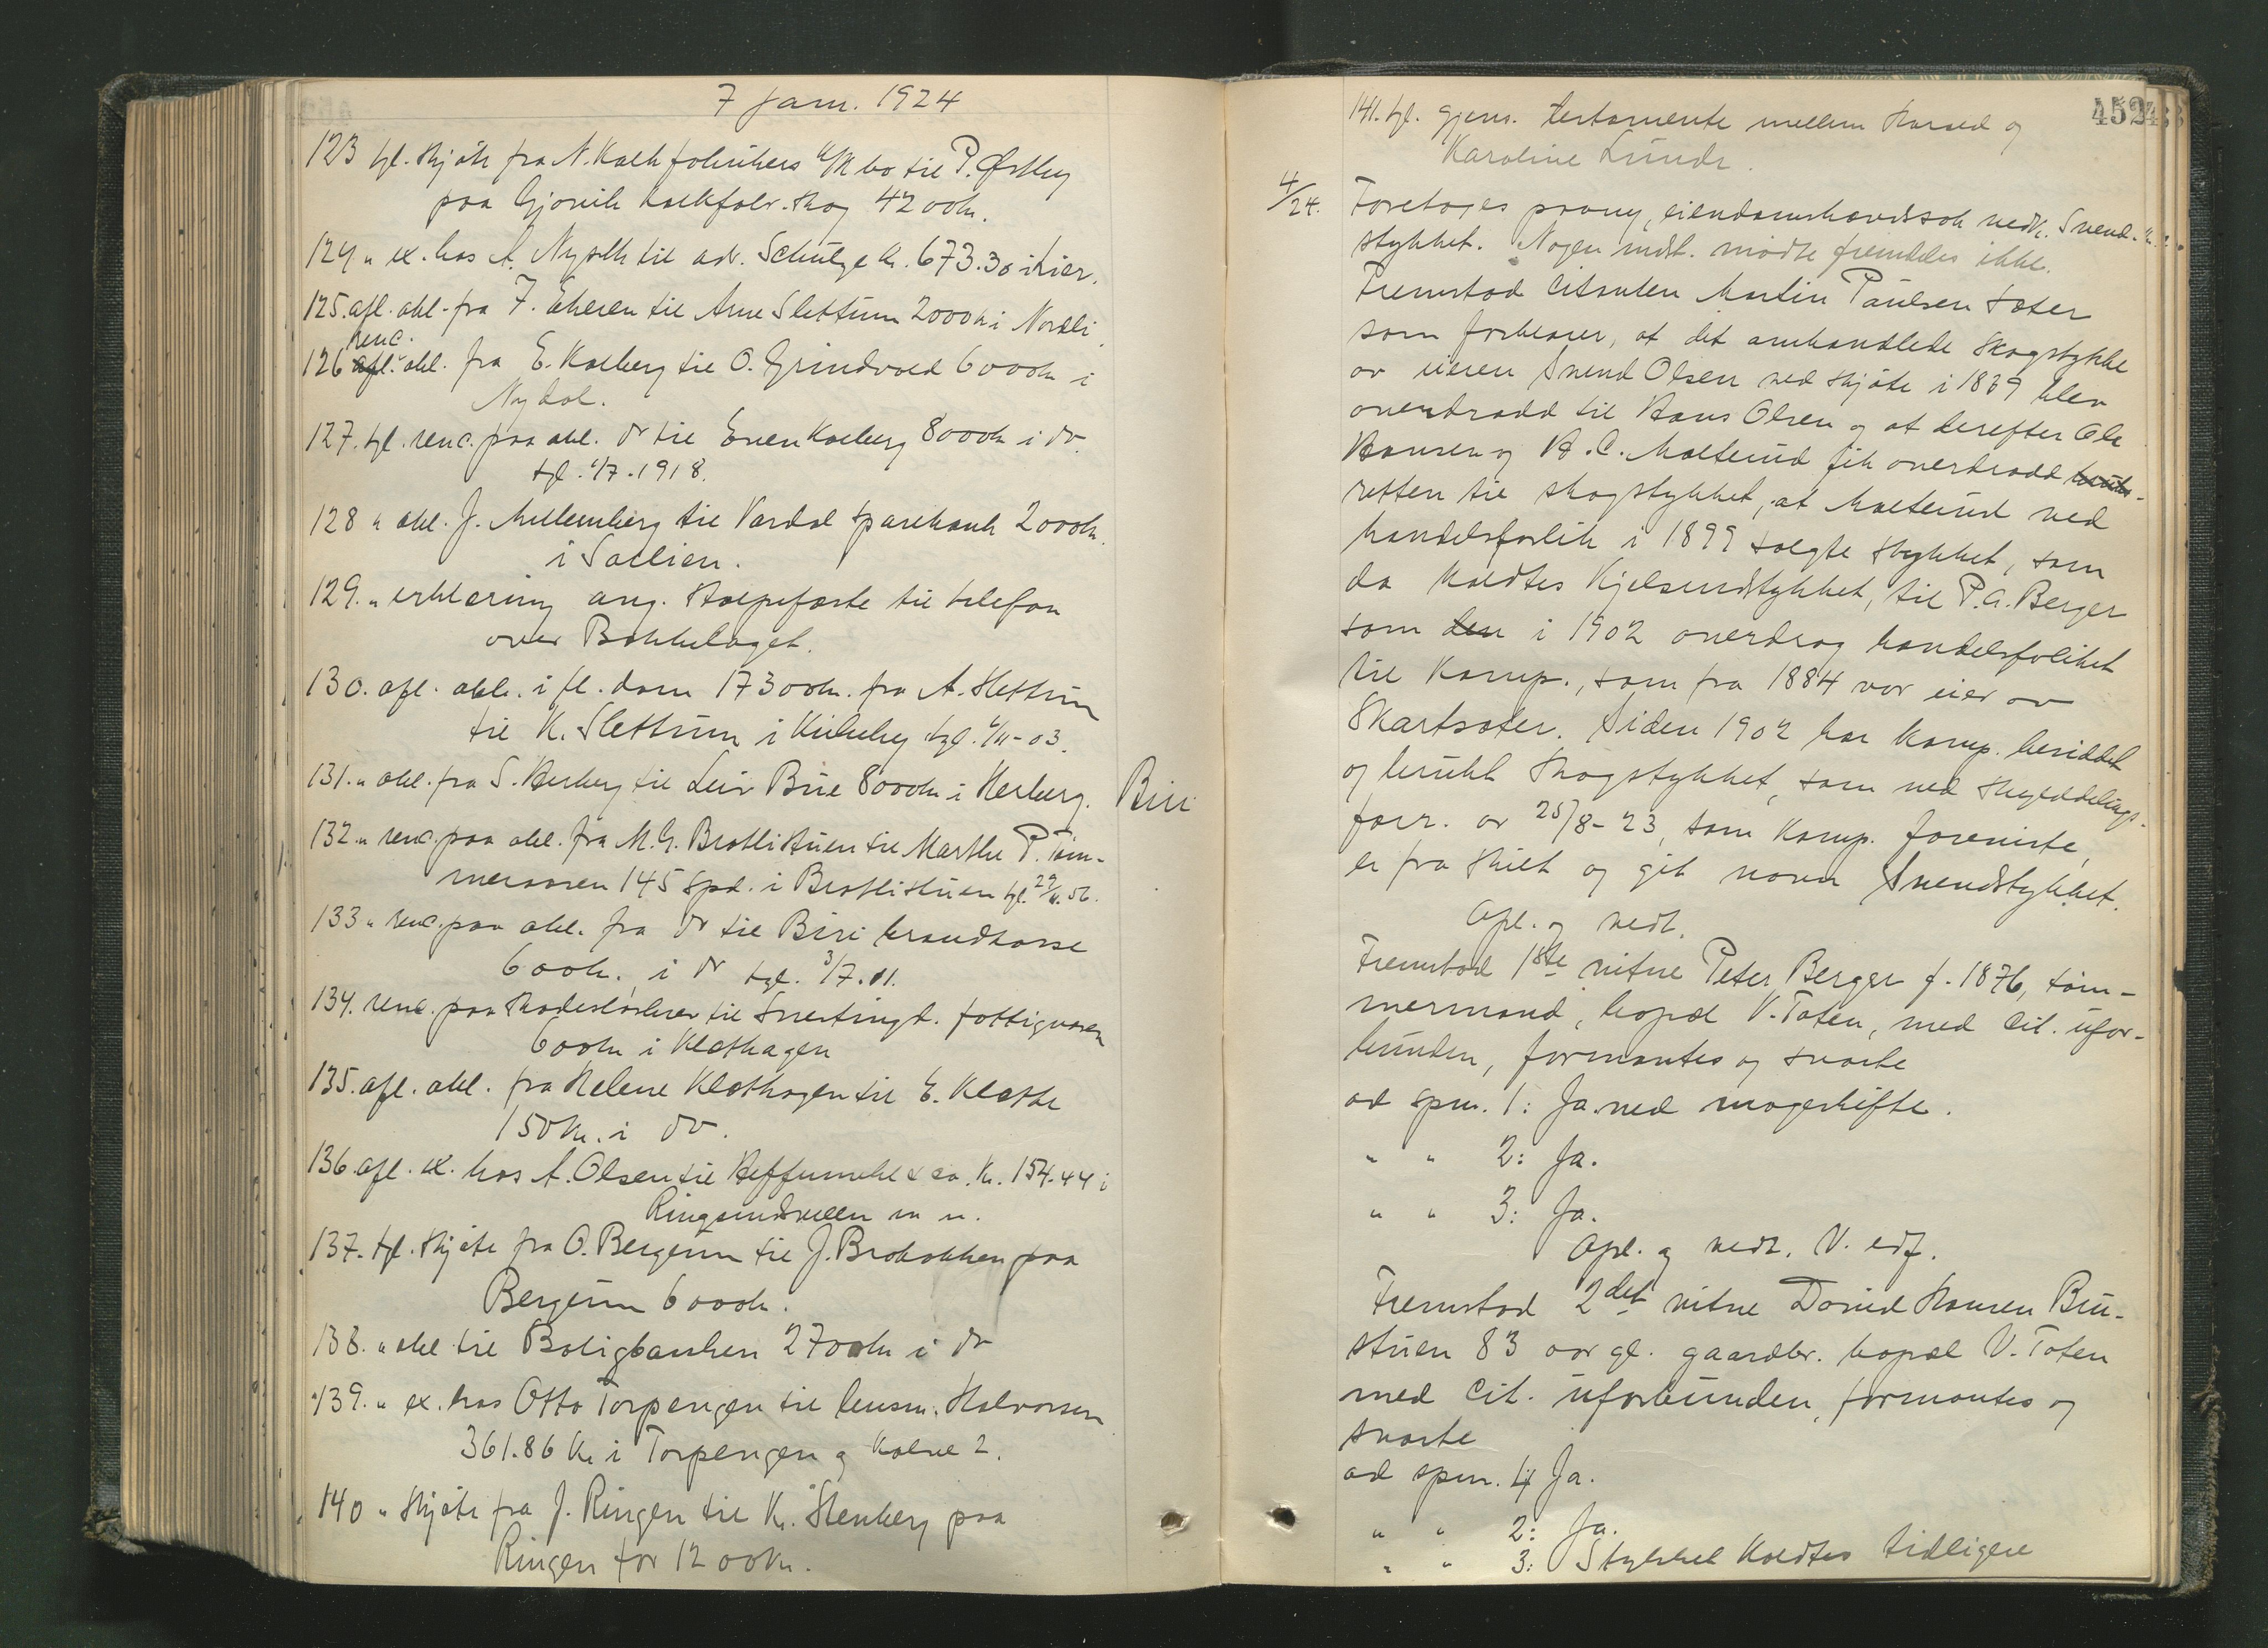 7 jan. 1924
123 tgl. skjøte fra N. Kalkfabrikers bo til P. Østby
paa Gjøvik kalkfabr. skog 4200kr.
124 " ex. hos A. til adv. Schulze kr. 673.30 i
125. afl. obl. fra F. Ekeren til Arne Slettum 2000kr i Nordli
renc.
126 afl. obl. fra E. Kolberg til O. Grindvold 6000kr i
Nydal.
127. tgl. renc. paa obl. do til Even Kolberg 8000kr i do
tgl. 1/7. 1918.
128 " obl. J. Mellemberg til Vardal sparebank 2000kr.
i Sollien.
129. " erklæring ang. stolpefæste til telefon
over Bakkelaget.
130. afl. obl. i fl. dom 17300kr. fra A. Slettum
til K. Slettum i tgl. /11-03.
131. " obl. fra S. Herberg til Leiv Bue 8000kr i Herberg. Biri
132. " renc. paa obl. fra M. G. Brotlistuen til Marthe P. Tøm-
meraasen 145 spd. i Brotlistuen tgl. 29/11.56.
133 " renc. paa obl. fra do til Biri brandkasse
600kr. i do tgl. 3/7.11.
134. renc. paa skadesløsbrev til Snertingd. fattigvæsen
600kr i Klæthagen
135. afl. obl. fra Helene Klæthagen til E. Kløthe
150kr. i do.
136 afl. ex. hos A. Olsen til & co. kr. 154.44 i
Ringsundvelen m m.
137. tgl. skjøte fra O. Bergum til J. Brobakken paa
Bergum 6000kr.
138. " obl til Boligbanken 2700kr i do
139. " ex. hos Otto Torpengen til lensm. Halvorsen
361.86 kr i Torpengen og Kalve 2.
140 " skjøte fra J. Ringen til K. Stenberg paa
Ringen for 1200kr.
452
141. tgl. gjens. testamente mellem Harald og
Karoline Lunde.
4/24. Foretages paany eiendomshævdssak vedk. Svend-
stykket. Nogen indst. møtte fremdeles ikke.
Fremstod citanten Martin Paulsen Sæter
som forklarer, at det omhandlede skogstykke
av eieren Svend Olsen ved skjøte i 1839 blev
overdradd til Hans Olsen og at derefter Ole
Hansen og H. C. Molterud fik overdradd
retten til skogstykket, at Molterud ved
handelsforlik i 1899 solgte stykket, som
da kaldtes Kjelsrudstykket, til P. A. Berger
som den i 1902 overdrog handelsfoliket
til Komp., som fra 1884 var eier av
Skartsæter. Siden 1902 har komp. besiddet
og brukt skogstykket, som ved skylddelings-
forr. av 25/8-23, som Komp. foreviste,
er fra skilt og git navn Svendstykket.
Opl. og vedt.
Fremstod 1ste vitne Peter Berger f. 1876, tøm-
mermand, bopæl V. Toten, med cit. ufor-
bunden, formantes og svarte
ad spm. 1: Ja ved mageskifte.
" " 2: Ja.
" " 3: Ja.
Opl. og vedt. V. edf.
Fremstod 2det vitne David Hansen Bru-
stuen 83 aar gl. gaardbr. bopæl V. Toten
med cit. uforbunden, formantes og
svarte
ad spm. 1 Ja.
" " 2: Ja.
" " 3: Stykket kaldtes tidligere